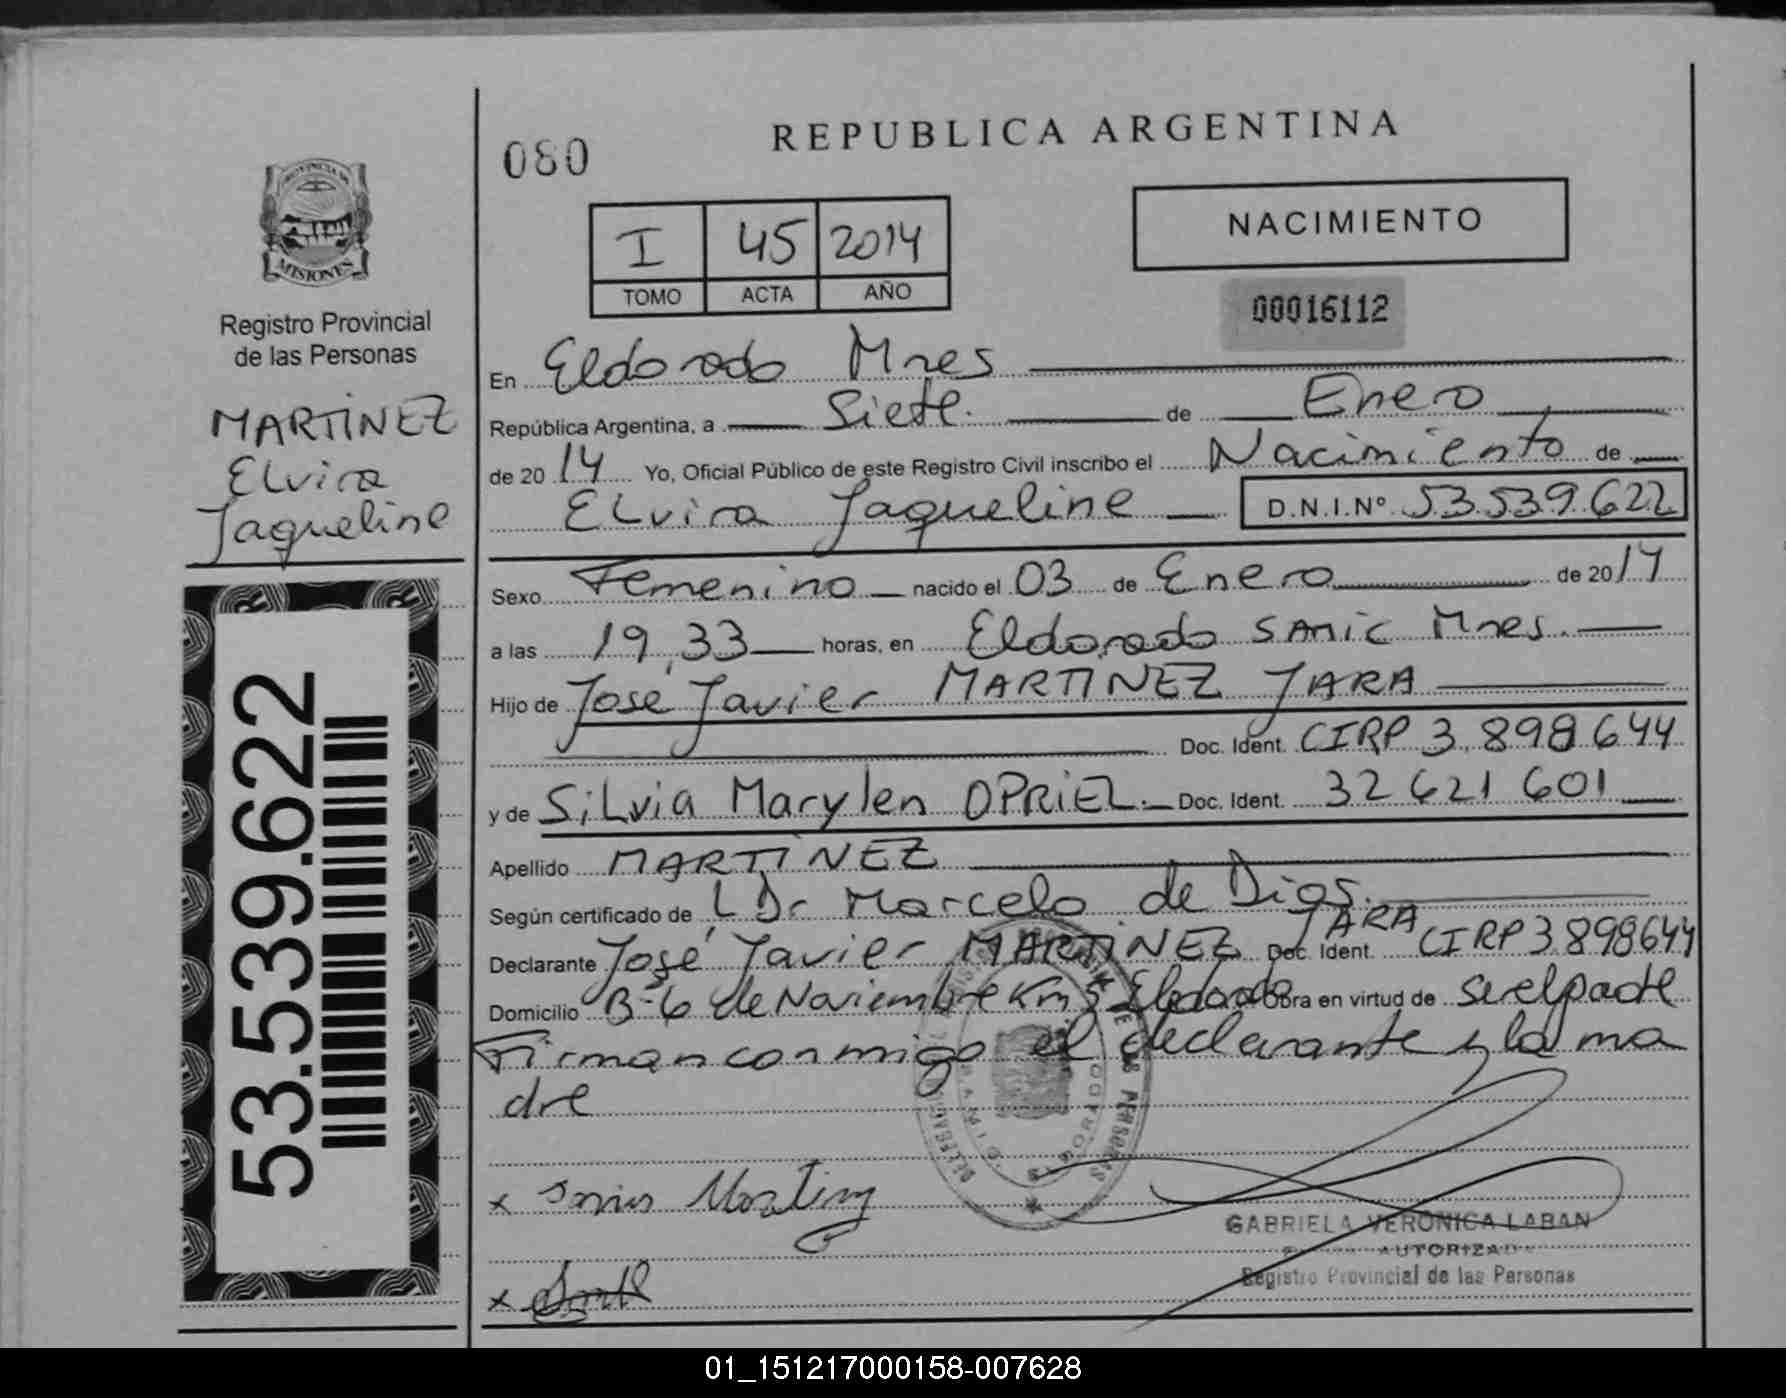 REPUBLICA ARGENTINA
080
PROVINCIA DE
MISIONES
Registro Provincial
de las Personas
MARTÍNEZ
Elvira
Jaqueline
53.539.622
I 45 2014
TOMO ACTA AÑO
NACIMIENTO
00016112
En Eldorado Mnes
República Argentina, a Siete. de Enero
de 2014 Yo, Oficial Público de este Registro Civil inscribo el Nacimiento de
Elvira Jaqueline D.N.I.Nº 53.539.622
Sexo Femenino nacido el 03 de Enero de 2014
a las 19,33 horas, en Eldorado SAMIC Mnes.
Hijo de José Javier MARTINEZ JARA
Doc. Ident. CIRP 3.898.644
y de Silvia Marylen OPRIEL. Doc. Ident. 32 621 601
Apellido MARTÍNEZ
Según certificado de Dr Marcelo de Dios.
Declarante José Javier MARTÍNEZ JARA Doc. Ident. CIRP 3.898644
Domicilio B-6 de Noviembre Km 5 Eldorado Obra en virtud de ser el padre
Firman conmigo el declarante y la ma
dre
x
x
GABRIELA VERONICA LABAN
AUTORIZADA
Registro Provincial de las Personas
01_151217000158-007628